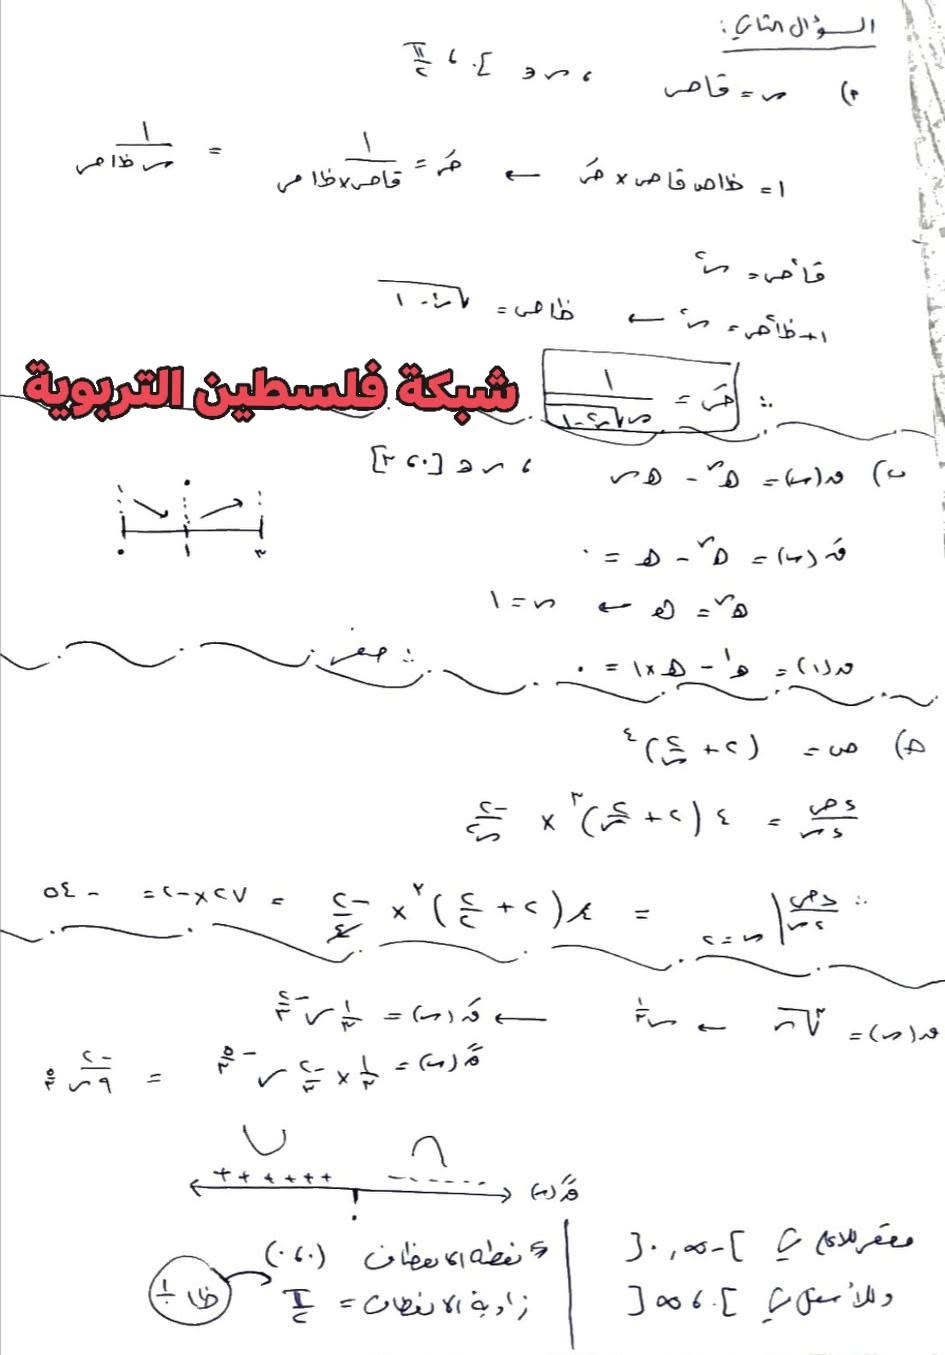 السؤال الثاني:
٢) س = قاص ، س ∈ ]٠ ، π/٢
١ = ظاص قاص × صَ ← صَ = ١/(قاص × ظاص) = ١/(س ظاص)
قا٢ص = س٢
١ + ظا٢ص = س٢ ← ظاص = √(س٢ - ١)
∴ صَ = ١/(س√(س٢ - ١))
شبكة فلسطين التربوية
ب) ق(س) = هـ^س - هـ س ، س ∈ [٠ ، ٣]
قَ(س) = هـ^س - هـ = ٠
هـ^س = هـ ← س = ١
٠ ١ ٣
ق(١) = هـ^١ - هـ × ١ = ٠ ∴ صفر
هـ) ص = (٢ + ٢/س)^٤
دص/دس = ٤(٢ + ٢/س)^٣ × -٢/س٢
∴ دص/دس | س=٢ = ٤(٢ + ٢/٢)^٣ × -٢/٤ = ٢٧ × -٢ = -٥٤
ق(س) = ∛س ← س^(١/٣) ← قَ(س) = ١/٣ س^(-٢/٣)
قً(س) = ١/٣ × -٢/٣ س^(-٥/٣) = -٢/(٩ س^(٥/٣))
∪ ∩
+ + + + + + - - - - - - قً(س)
٠
مقعر للأعلى في ]-∞، ٠[
وللأسفل في ]٠، ∞[
نقطة الانعطاف (٠،٠)
زاوية الانعطاف = π/٢
ظا ١/٠